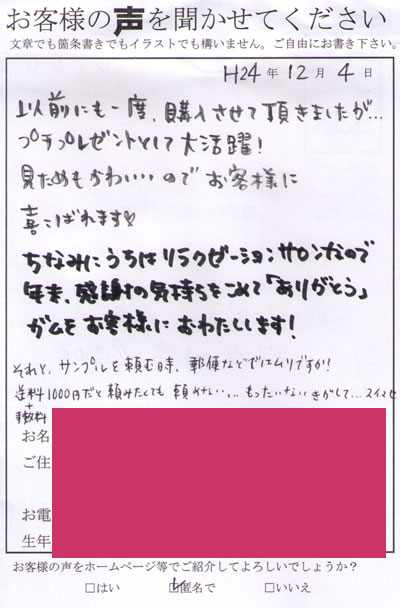 お客様の声を聞かせてください
文章でも箇条書きでもイラストでも構いません。ご自由にお書き下さい。
H24年12月4日
以前にも一度、購入させて頂きましたが…
プチプレゼントとして大活躍!
見ためもかわいいのでお客様に
喜こばれます♡
ちなみにうちはリラクゼーションサロンなので
年末、感謝の気持ちをこめて「ありがとう」
ガムをお客様におわたしします!
それと、サンプルを頼む時、郵便などではムリですか?
送料1000円だと頼みたくても頼めない… もったいないきがして…スイマセ
+
手数料
お名
ご住
お電
生年
お客様の声をホームページ等でご紹介してよろしいでしょうか?
□はい ☑匿名で □いいえ